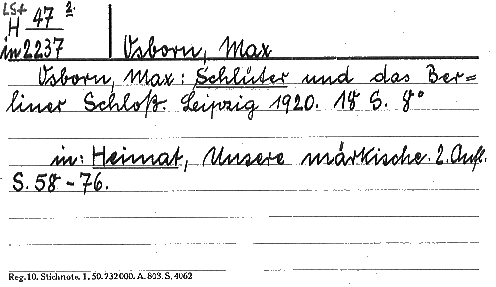 LS+
H 47 2.
in 2237
Osborn, Max
Osborn, Max: Schlüter und das Ber=
liner Schloß. Leipzig 1920. 18 S. 8°
in: Heimat, Unsere märkische. 2. Aufl.
S. 58-76.
Reg. 10. Stichnote. 1. 50. 732000. A. 803. S. 4062